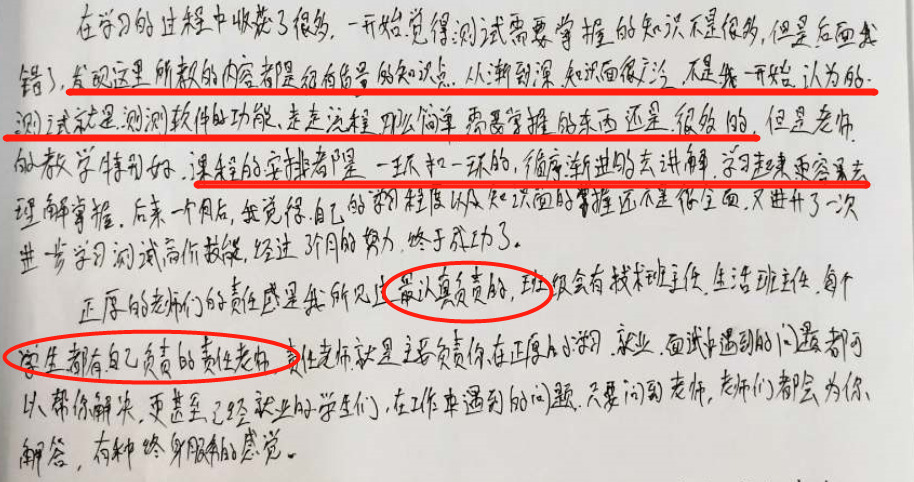 在学习的过程中收获了很多，一开始觉得测试需要掌握的知识不是很多，但是后面我
错了，发现这里所教的内容都是很有质量的知识点，从渐到深 知识面很广泛 不是我一开始认为的
测试就是测测软件的功能、走走流程 那么简单 需要掌握的东西还是很多的，但是老师
的教学特别好，课程的安排都是一环扣一环的，循序渐进的去讲解，学习起来更容易去
理解掌握。后来一个月后，我觉得自己的学习程度以及知识面的掌握还不是很全面，又进升了一次
进一步学习测试高价技能，经过3个月的努力，终于成功了。
正厚的老师们的责任感是我所见过最认真负责的，班级会有技术班主任、生活班主任，每个
学生都有自己负责的责任老师，责任老师就是主要负责你在正厚的学习、就业、面试中遇到的问题都可
以帮你解决，更甚至已经就业的学生们，在工作中遇到的问题，只要问到老师，老师们都会为你
解答，有种终身服务的感觉。